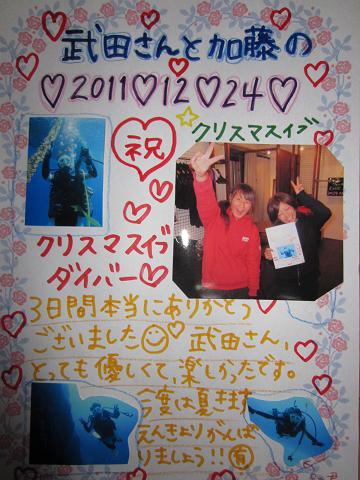 武田さんと加藤の
♡2011♡12♡24♡
☆クリスマスイブ
祝
クリスマスイブ
ダイバー♡
3日間本当にありがとう
ございました☺ 武田さん、
とっても優しくて、楽しかったです。
今度は夏きます
えんきょりがんば
りましょう!!有